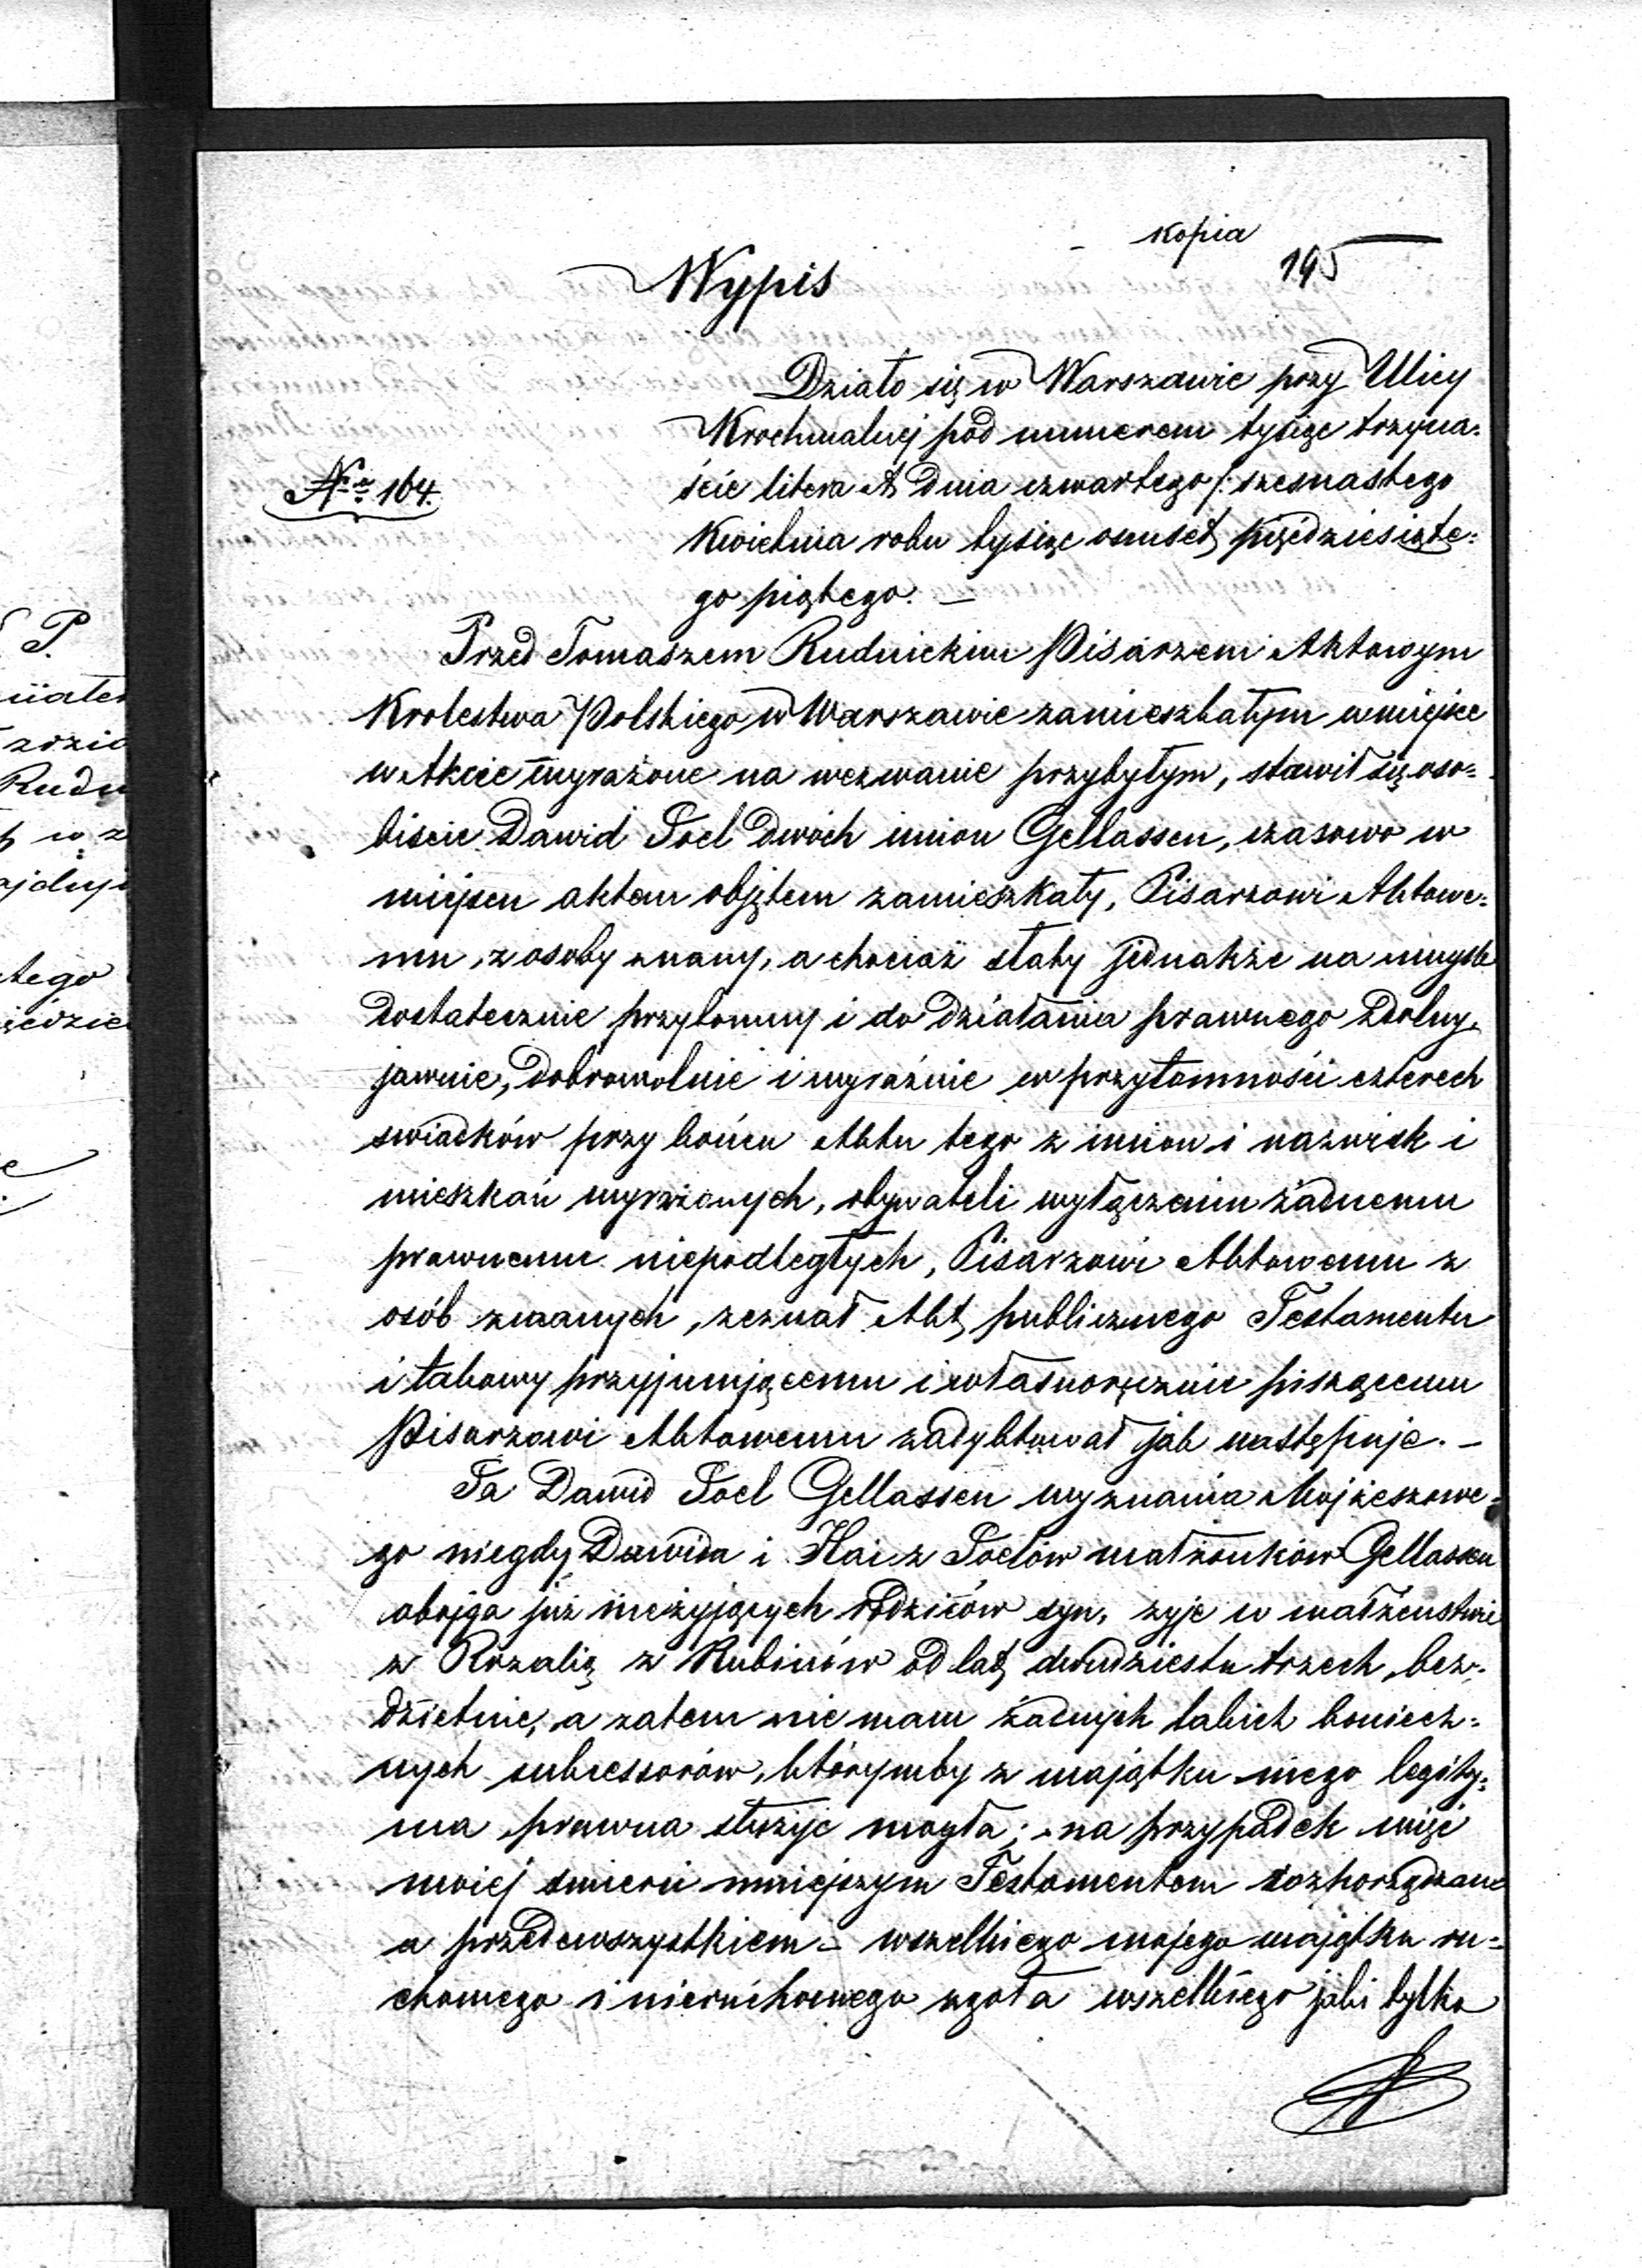 kopia
195
Wypis
Działo się w Warszawie przy Ulicy
Krochmalnej pod numerem tysiąc trzyna=
ście litera A dnia czwartego /: szesnastego
Kwietnia roku tysiąc osmset pięćdziesiąte=
go piątego. —
No 164.
Przed Tomaszem Rudnickim Pisarzem Aktowym
Krolestwa Polskiego w Warszawie zamieszkałym w miejsce
w Akcie wyrażone na wezwanie przybyłym, stawił się oso=
biscie Dawid Joel dwóch imion Gellassen, czasowo w
miejscu aktem objętem zamieszkały, Pisarzowi Aktowe=
mu, z osoby znany, a chociaż słaby jednakże na umyśle
dostatecznie przytomny i do działania prawnego zdolny,
jawnie, dobrowolnie i wyraźnie w przytomności czterech
swiadków przy końcu Aktu tego z imion i nazwisk i
mieszkań wyrażonych, obywateli wyłączeniu żadnemu
prawnemu niepodległych, Pisarzowi Aktowemu z
osób znanych, zeznał Akt publicznego Testamentu
i takowy przyjmującemu i własnoręcznie piszącemu
Pisarzowi Aktowemu zadyktował jak następuje. —
Ja Dawid Joel Gellassen wyznania Mojżeszowe=
go niegdy Dawida i Hai z Joelów małżonków Gellassen
obojga już nieżyjących rodziców syn, zyje w małżeństwie
z Rozalią z Rubinów od lat dwudziestu trzech, bez=
dzietnie, a zatem nie mam żadnych takich koniecz=
nych sukcessorów, którymby z majątku mego legity=
ma prawna służyc mogła; na przypadek więc
moiej smierci niniejszym Testamentem rozporządzam
a przedewszystkiem — wszelkiego mojego majątku ru=
chomego i nieruchomego zgoła wszelkiego jaki tylko